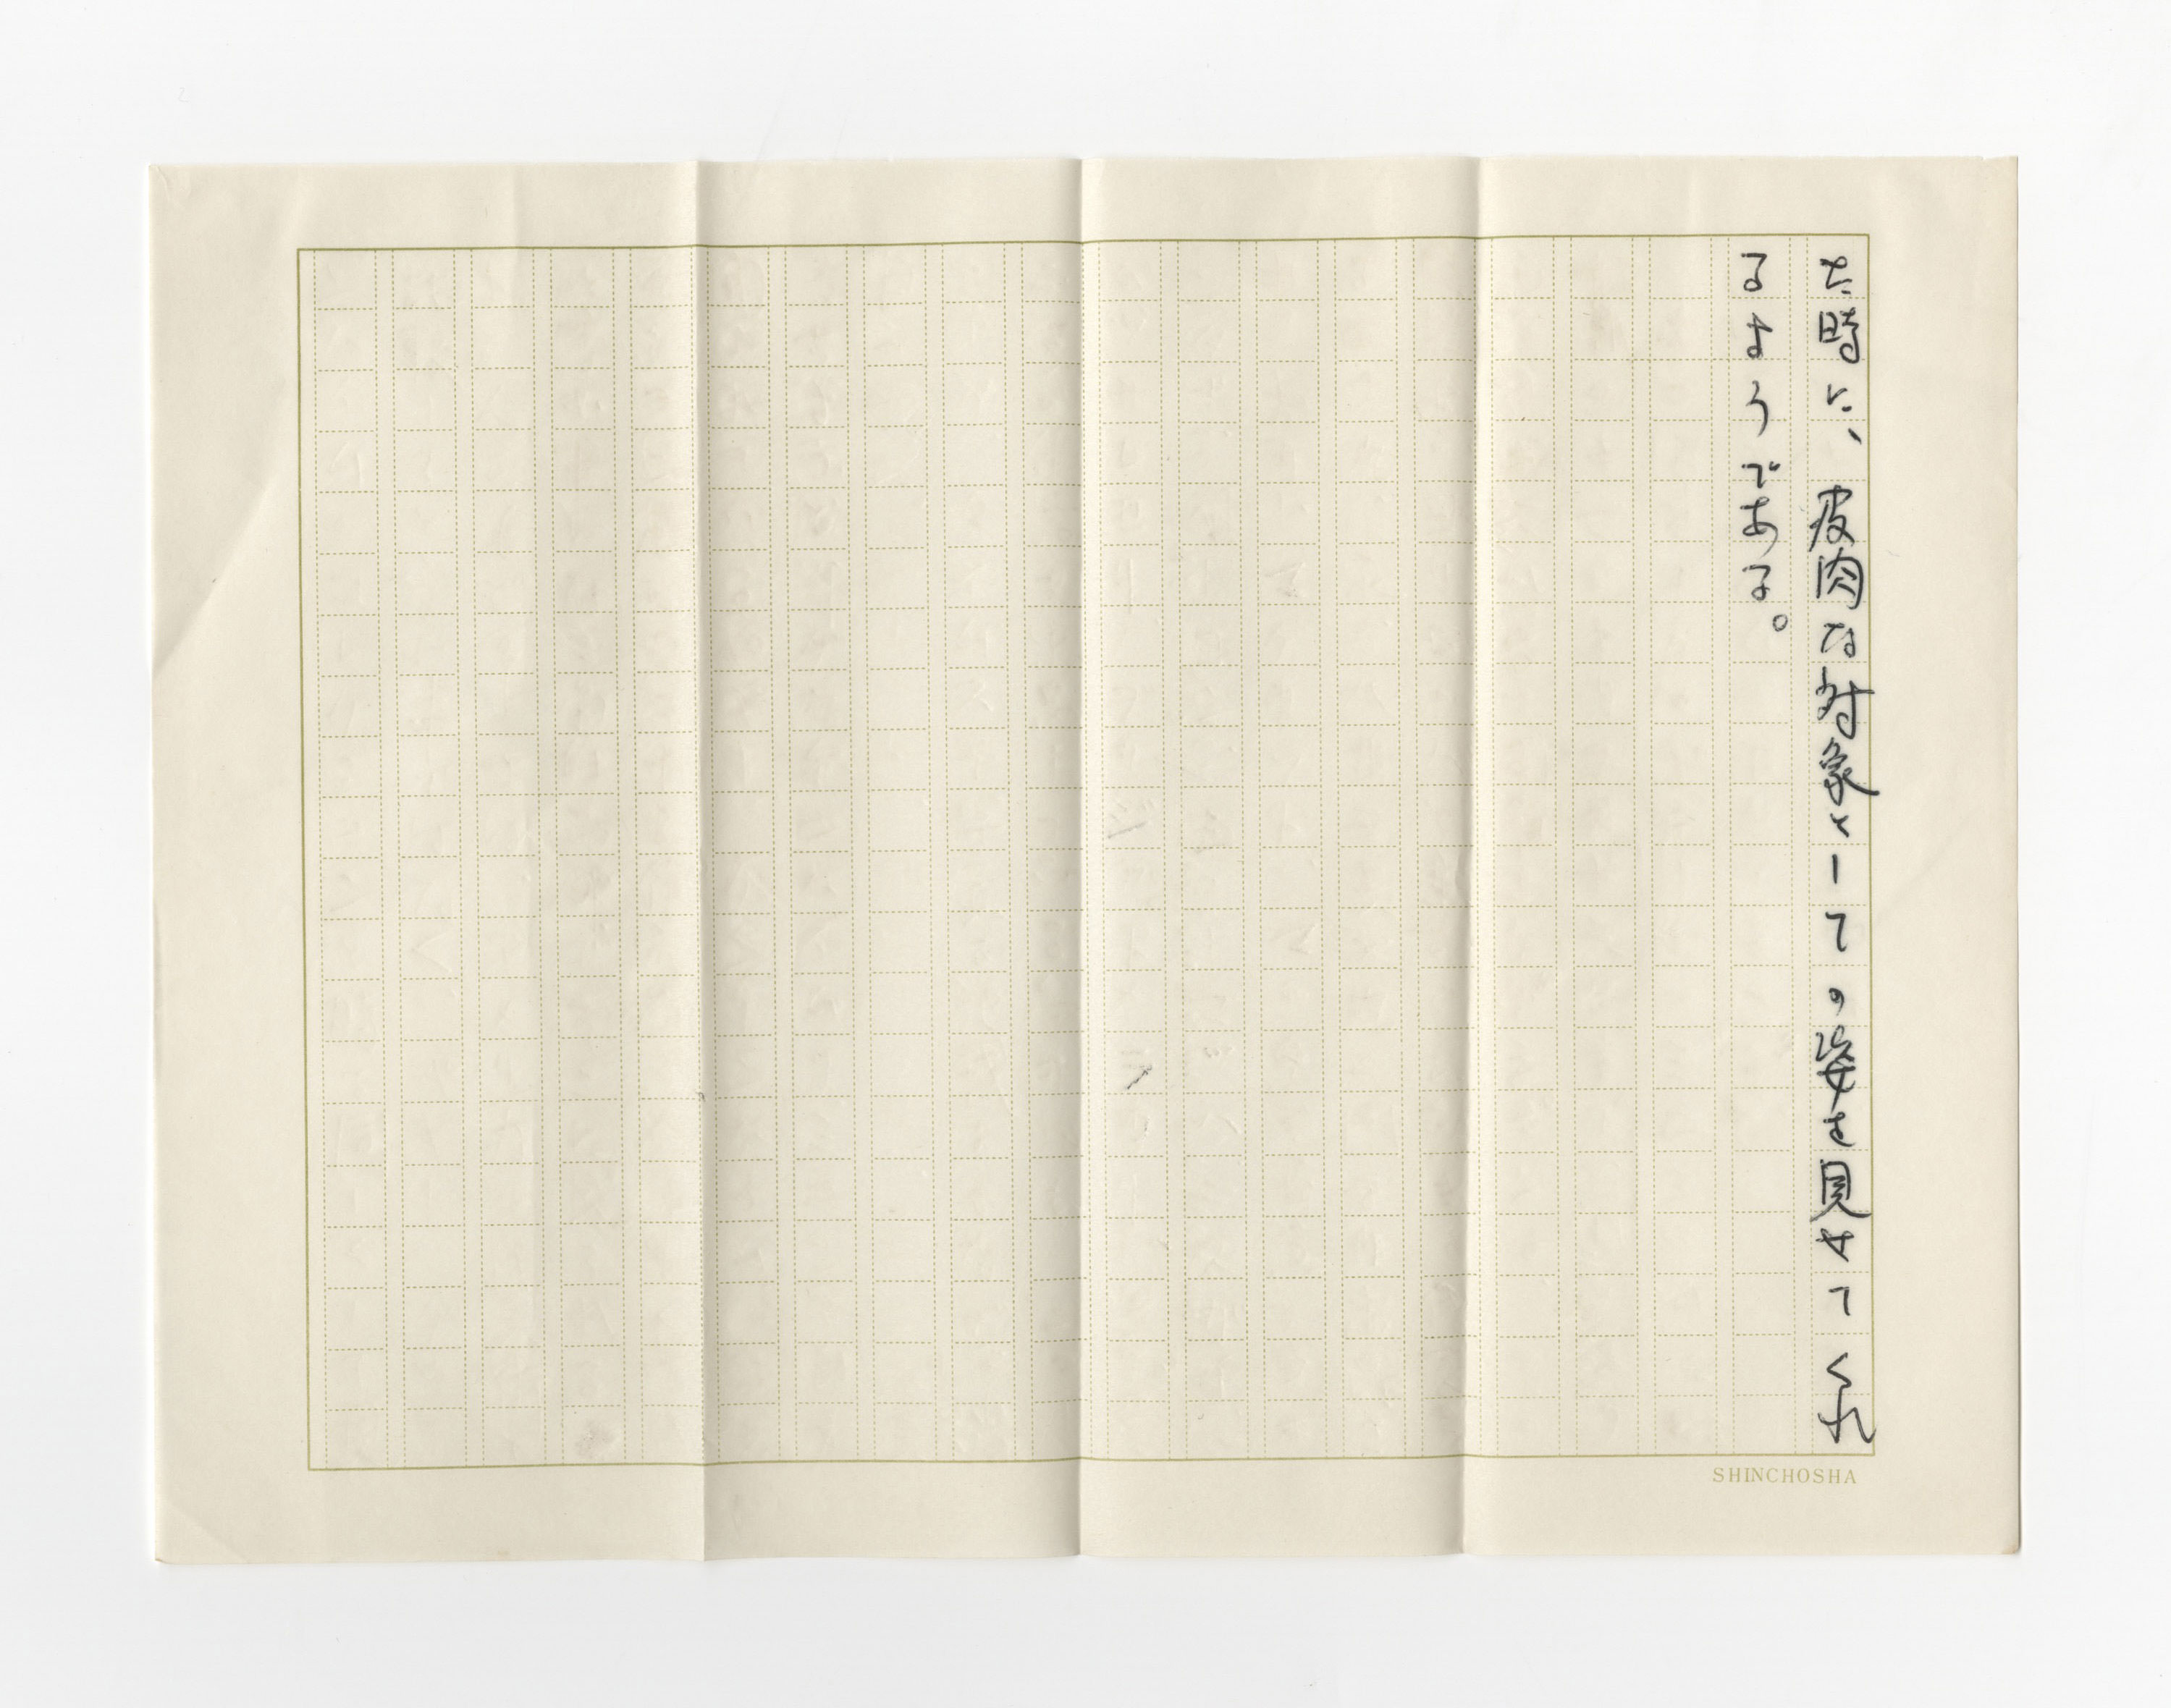 た時に、皮肉な対象としての姿を見せてくれ
るようである。
SHINCHOSHA